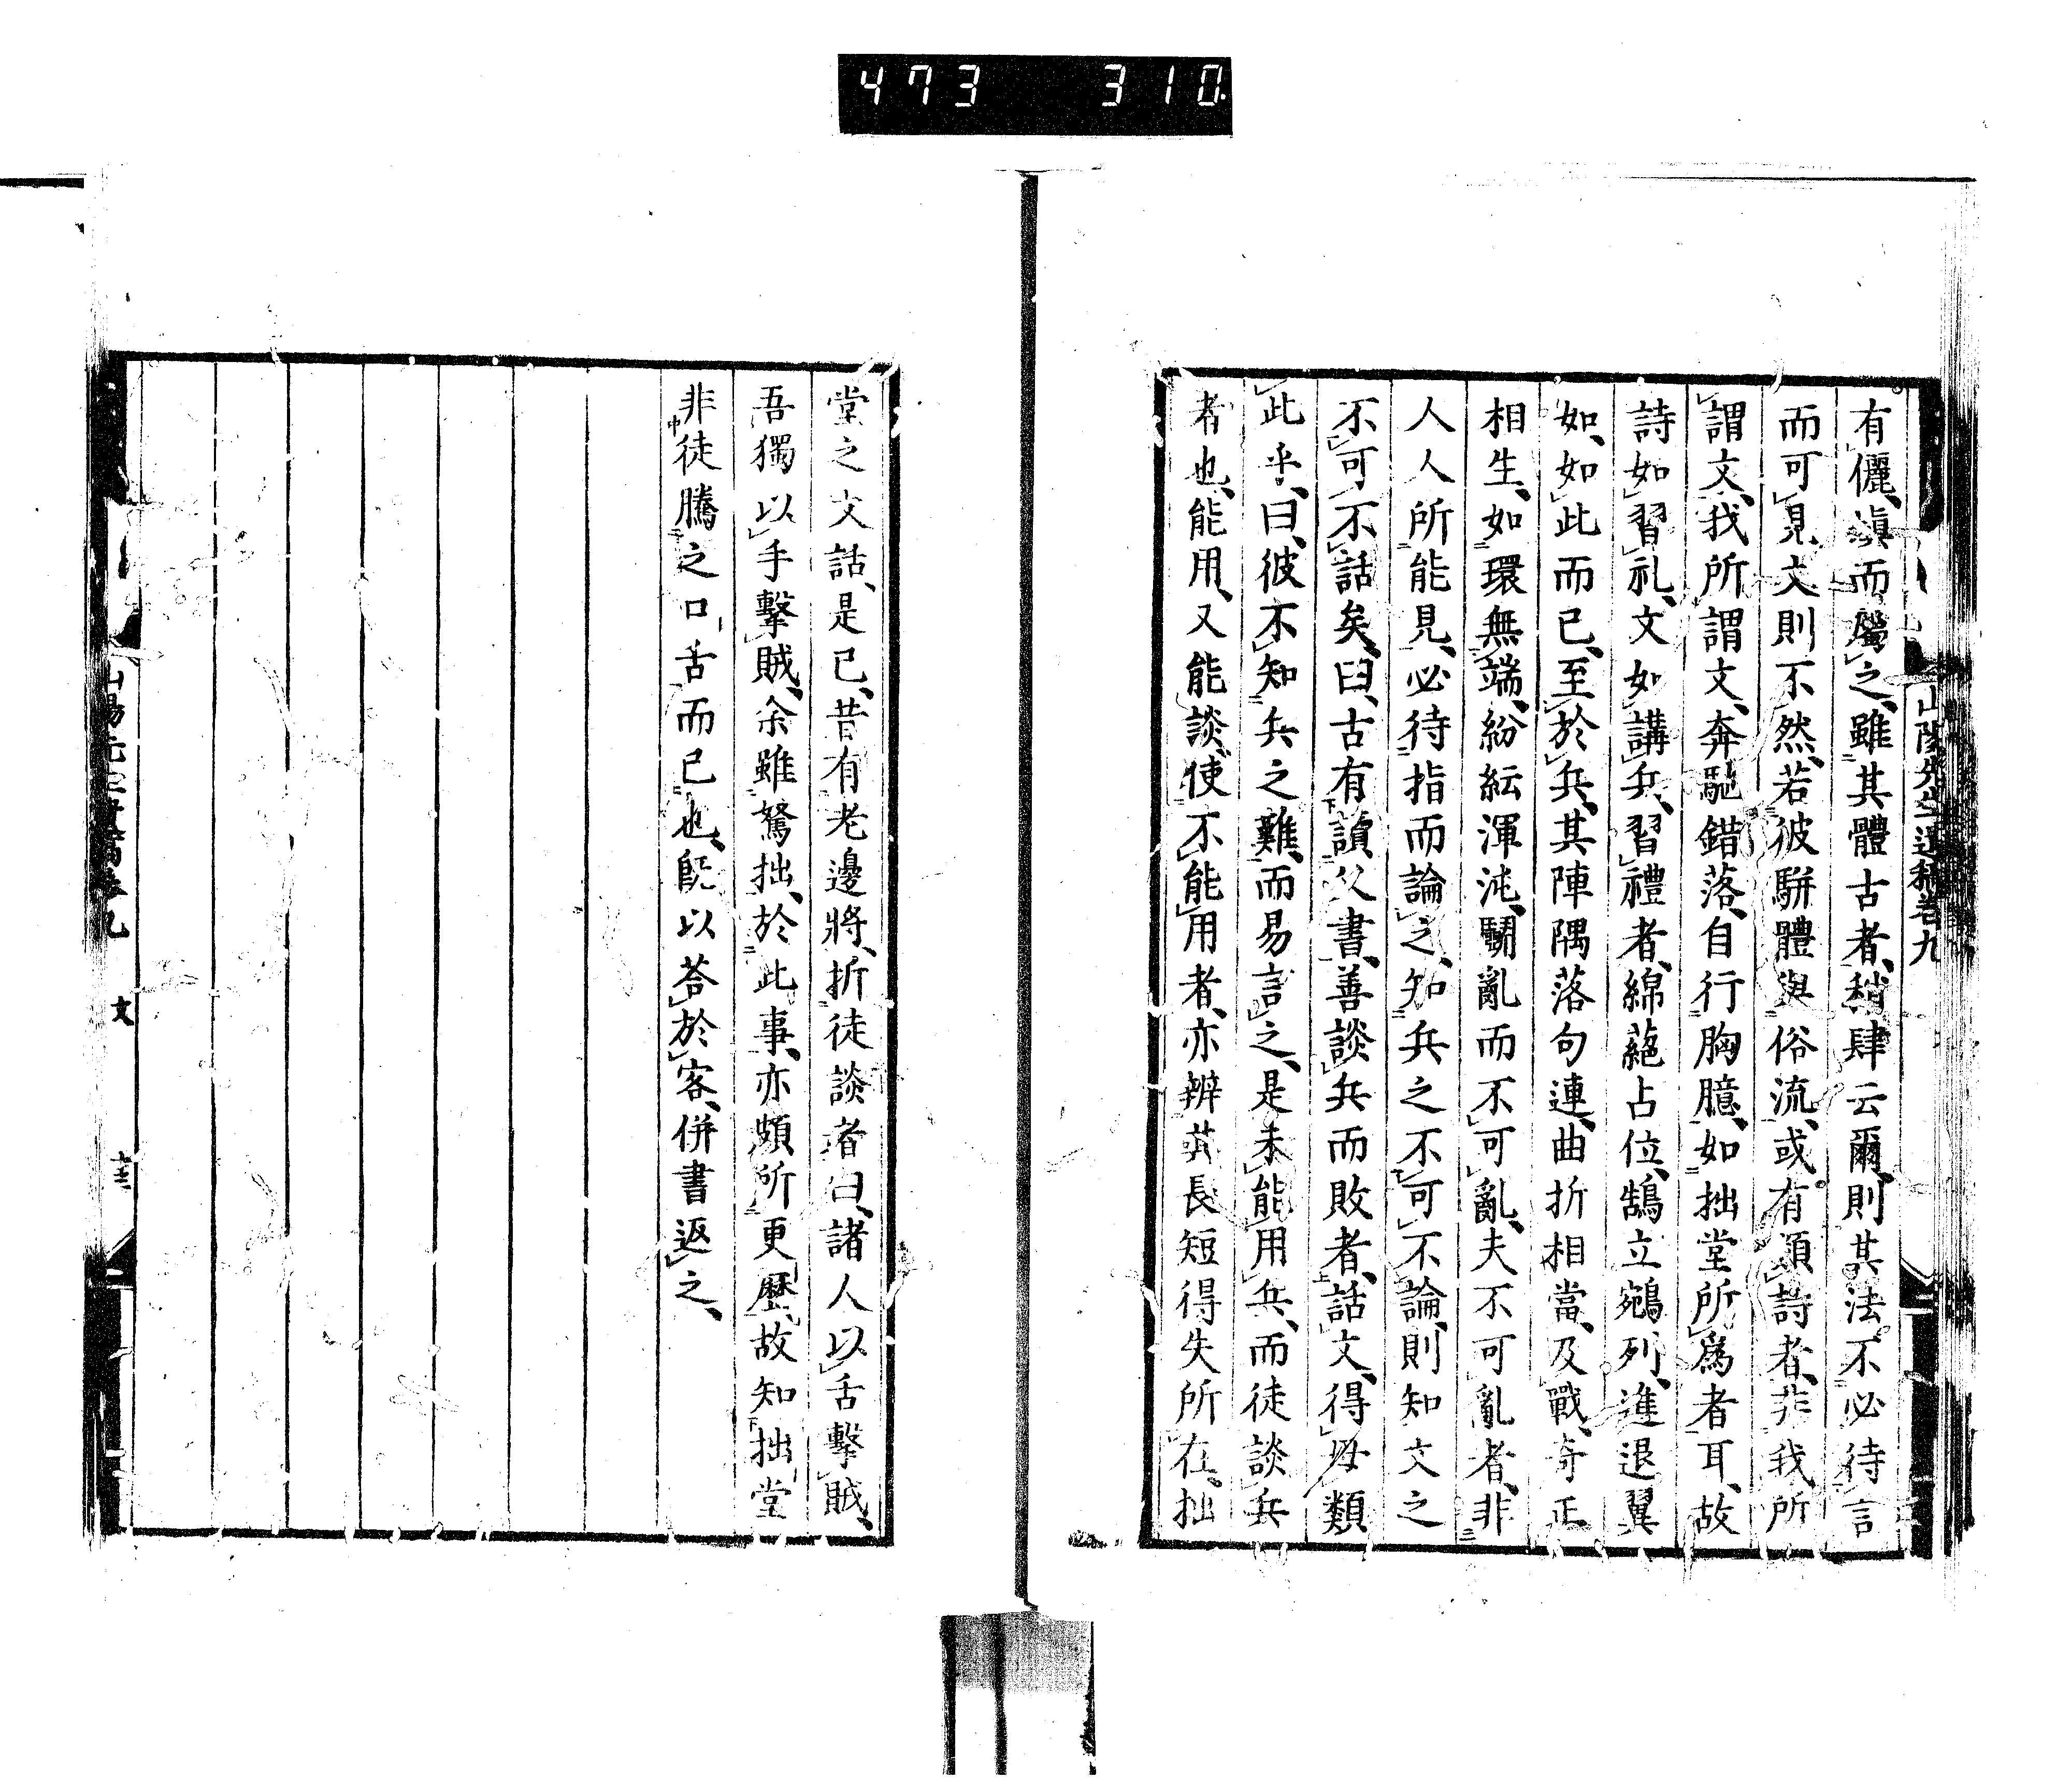 473 310.
山陽先生遺稿卷九
有儷、塡而屬之、雖其體古者、稍肆云爾、則其法不必待言
而可見、文則不然、若彼駢體與俗流、或有類詩者、非我所
謂文、我所謂文、奔馳錯落、自行胸臆、如拙堂所爲者耳、故
詩如習礼、文如講兵、習禮者、綿蕝占位、鵠立鵷列、進退翼
如、如此而已、至於兵、其陣隅落句連、曲折相當、及戰、奇正
相生、如環無端、紛紜渾沌、鬪亂而不可亂、夫不可亂者、非
人人所能見、必待指而論之、知兵之不可不論、則知文之
不可不話矣、曰、古有讀父書、善談兵而敗者、話文、得毋類
此乎、曰、彼不知兵之難、而易言之、是未能用兵、而徒談兵
者也、能用、又能談、使不能用者、亦辨其長短得失所在、拙
堂之文話、是已、昔有老邊將、折徒談者曰、諸人以舌擊賊、
吾獨以手擊賊、余雖駑拙、於此事、亦頗所更歷、故知拙堂
非徒騰之口舌而已也、既以荅於客、併書返之、
文